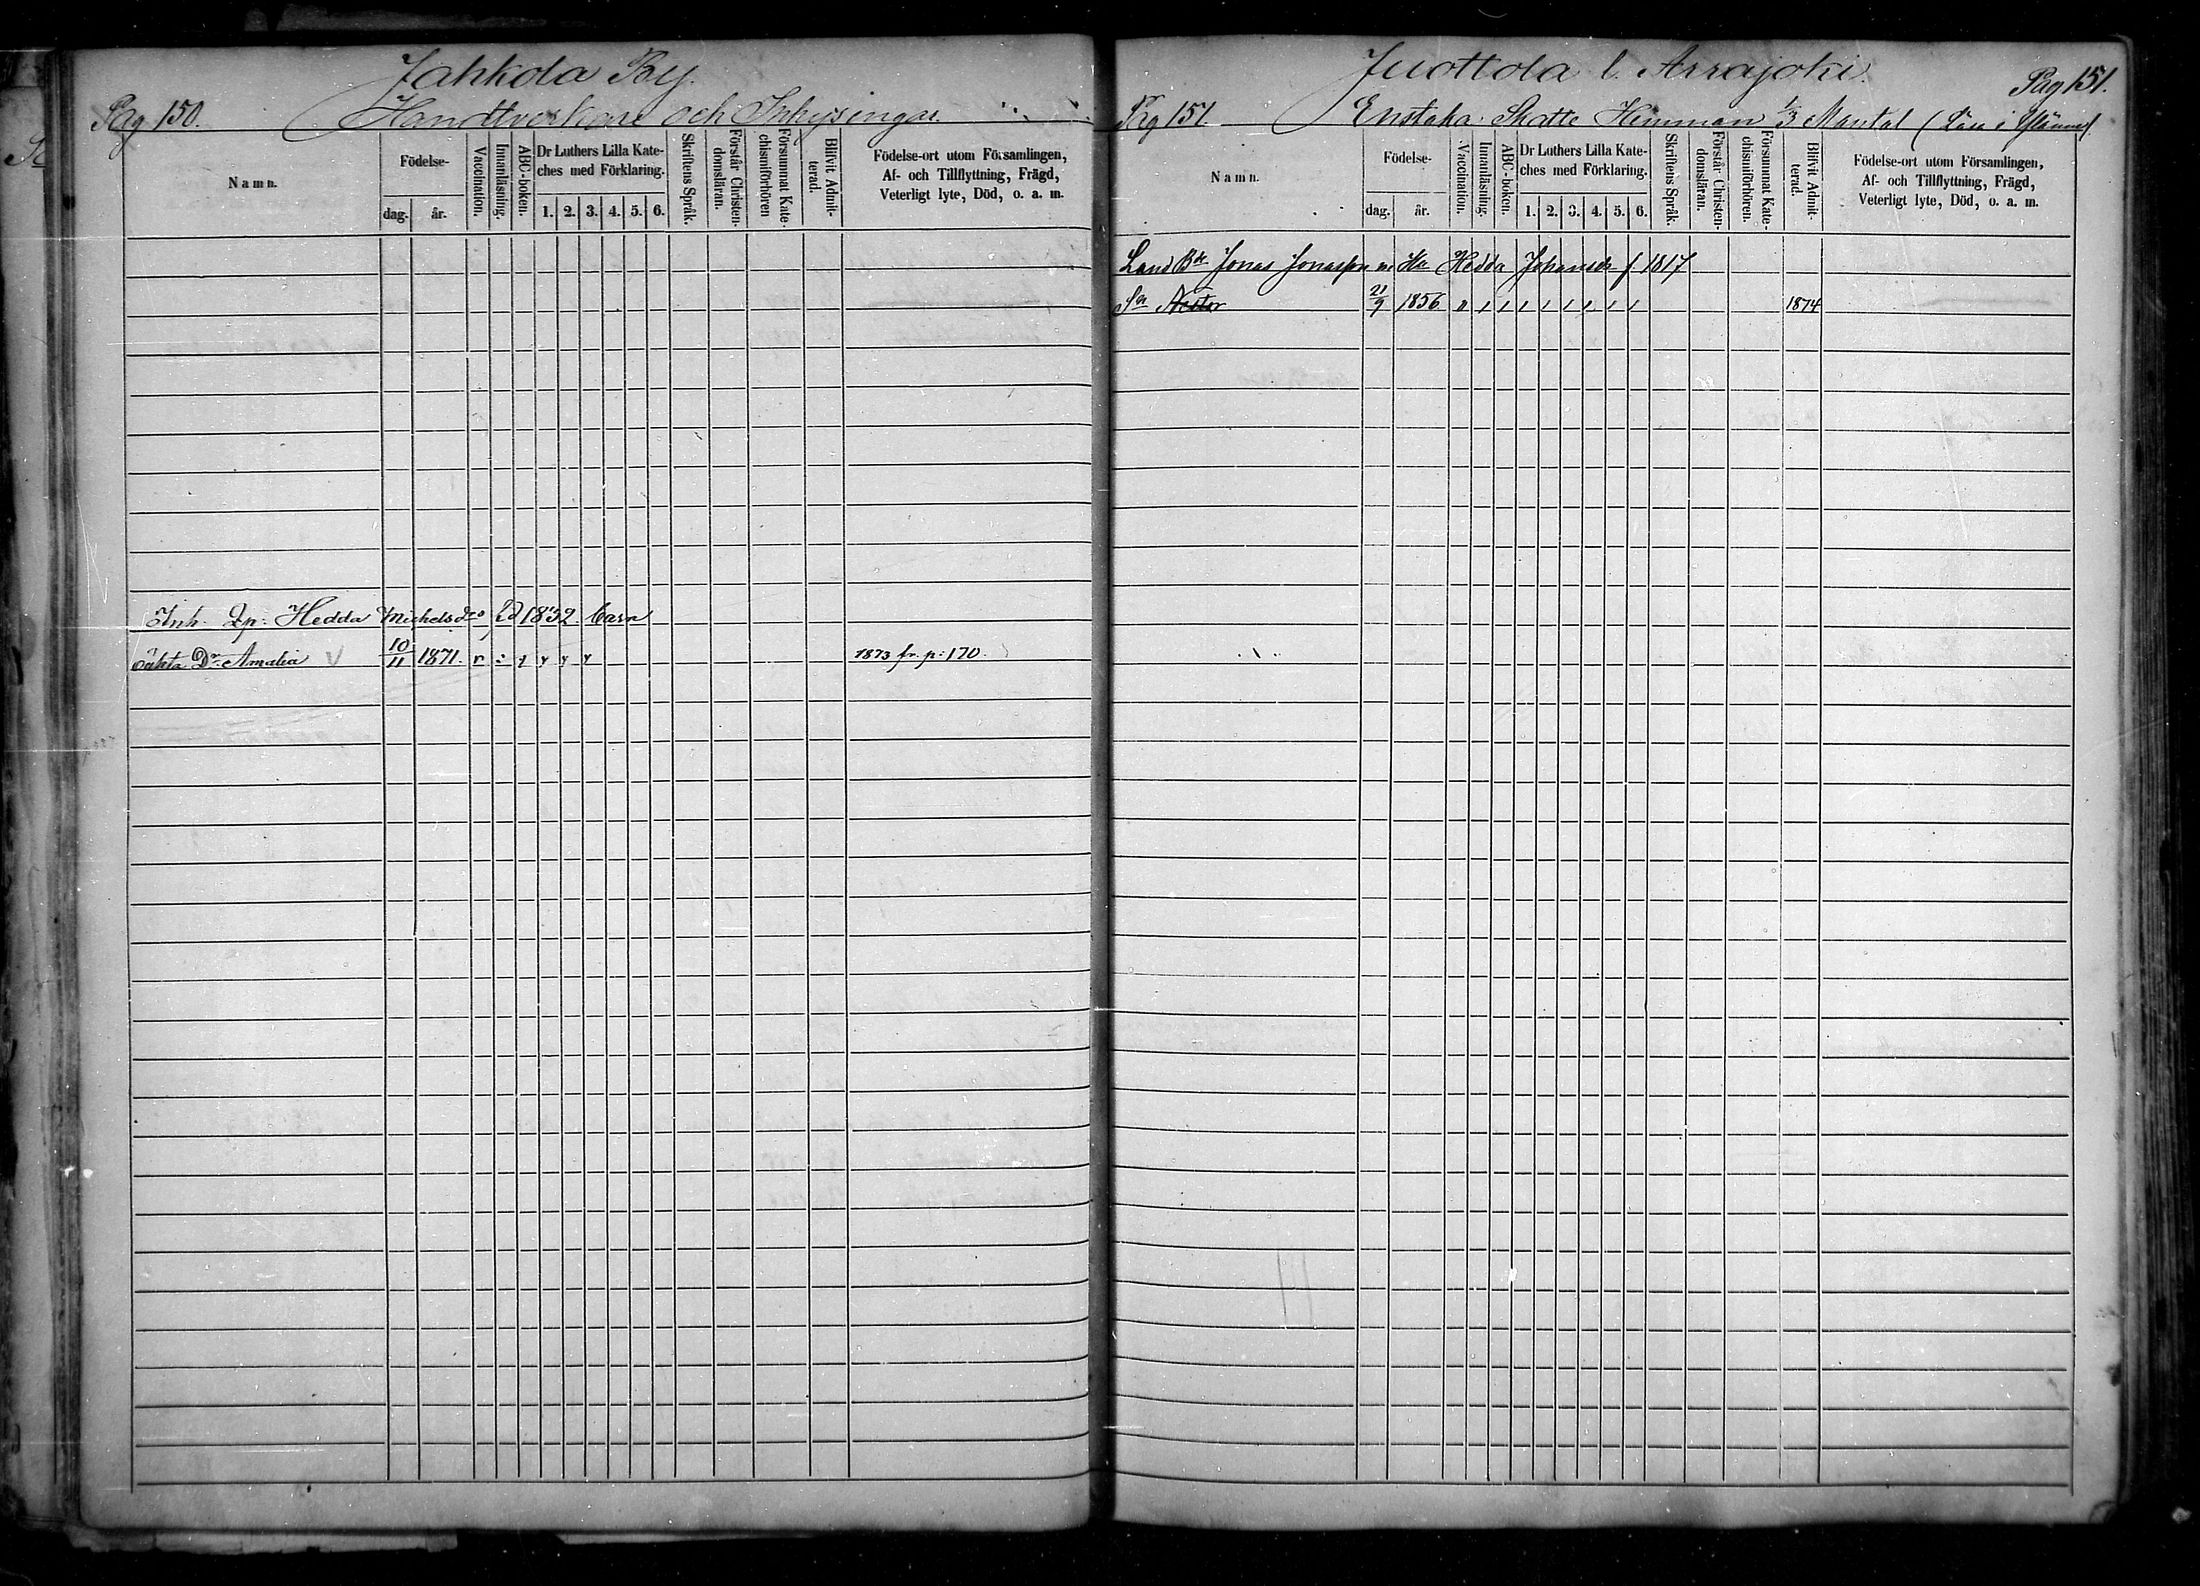 Pag 150. Jahkola By.
Handtverkare och Inhysingar.
Namn.
Födelse-
dag. år.
Vaccination.
Innanläsning.
ABC-boken.
Dr Luthers Lilla Kate-
ches med Förklaring.
1. 2. 3. 4. 5. 6.
Skriftens Språk.
Förstår Christen-
domsläran.
Försummat Kate-
chismiförhören
Blifvit Admit-
terad.
Födelse-ort utom Församlingen,
Af- och Tillflyttning, Frägd,
Veterligt lyte, Död, o. a. m.
Inh. Hedda Michelsdr 1832 barn
oäkta Dr Amalia 10/11 1871. 1873 fr. p: 170.
Juottola l. Arrajoki. Pag 151.
Pag 151. Enstaka Skatte Hemman 1/3 Mantal
Namn.
Födelse-
dag. år.
Vaccination.
Innanläsning.
ABC-boken.
Dr Luthers Lilla Kate-
ches med Förklaring.
1. 2. 3. 4. 5. 6.
Skriftens Språk.
Förstår Christen-
domsläran.
Försummat Kate-
chismiförhören.
Blifvit Admit-
terad.
Födelse-ort utom Församlingen,
Af- och Tillflyttning, Frägd,
Veterligt lyte, Död, o. a. m.
Land Bde Jonas Jonasson Hedda Johansdr f 1817
Sn Nestor 21/9 1856 1874